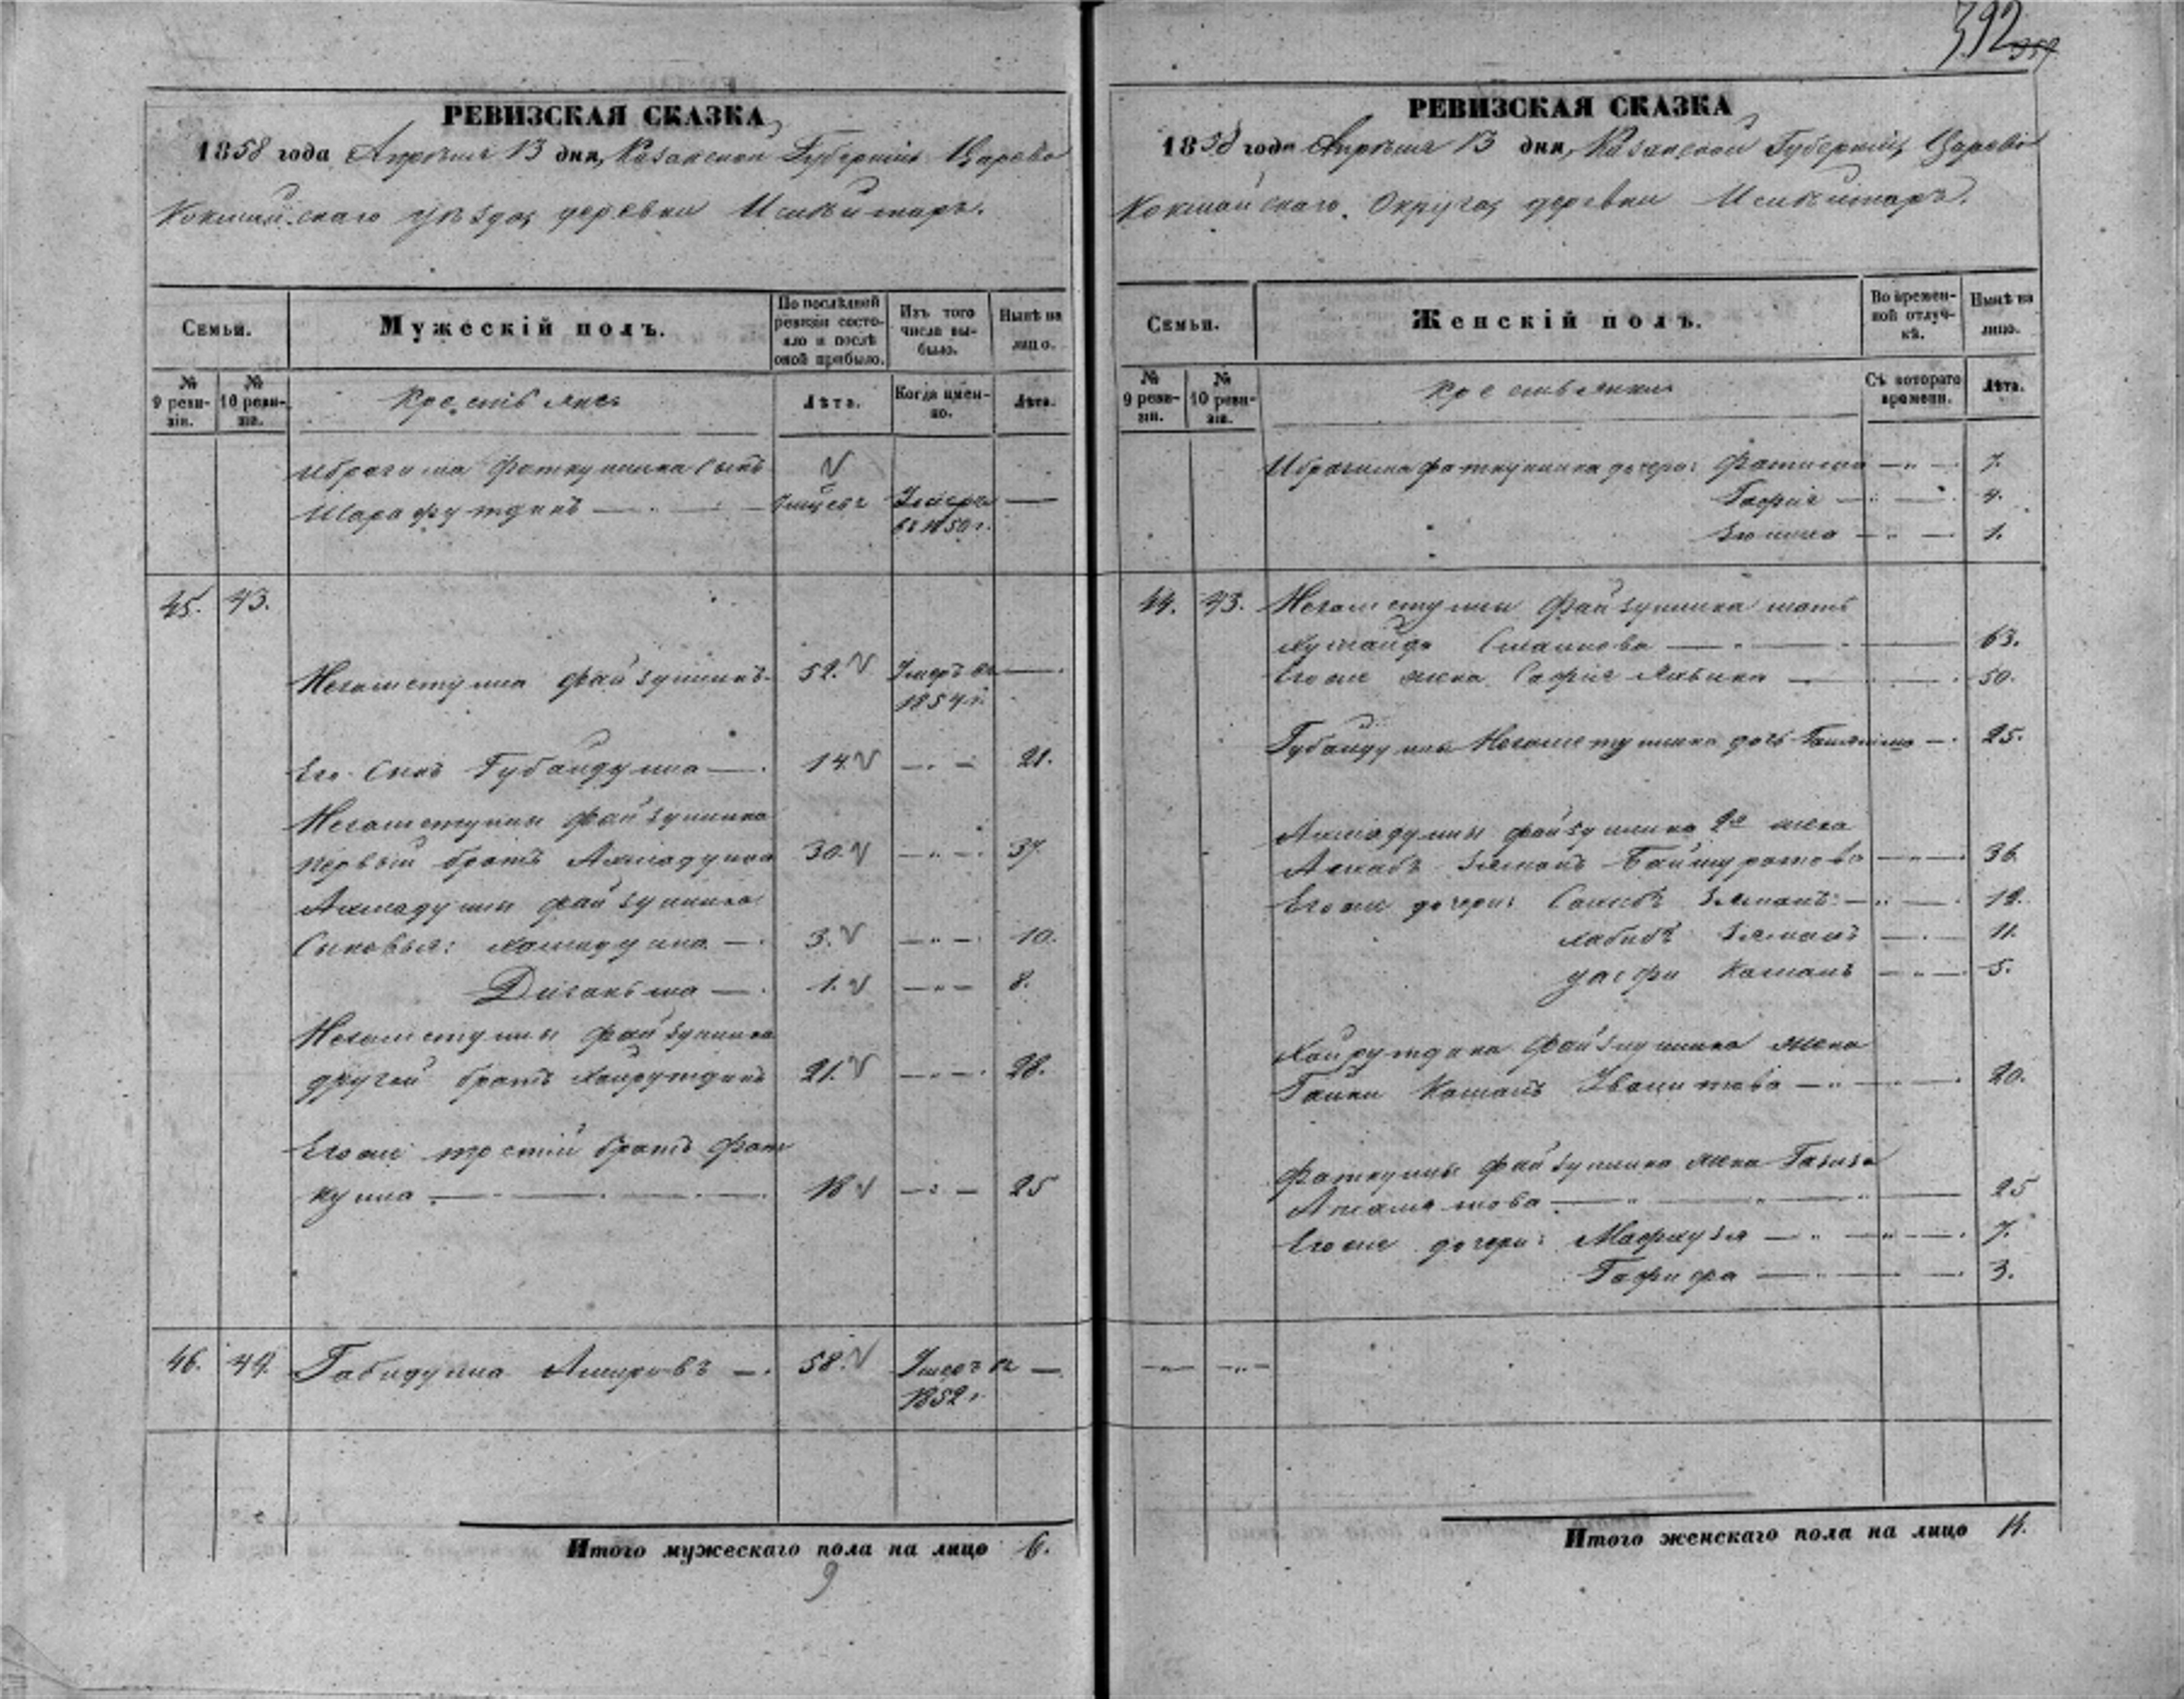 392
РЕВИЗСКАЯ СКАЗКА
1858 года Апреля 13 дня, Казанской Губерніи Царево
Кокшайскаго уѣзда, деревни
Семьи.
Мужескій полъ.
По послѣдней ревизіи состояло и послѣ оной прибыло.
Изъ того числа выбыло.
Нынѣ на лицо.
№ 9 ревизіи.
№ 10 ревизіи.
Крестьяне
Лѣта.
Когда именно.
Лѣта.
Ибрагима Фаткуллина сынъ
Шарафутдинъ — Умеръ —
въ 1850 г.
45. 43.
Негаметулла Файзуллинъ 52. Умеръ въ —
1854 г.
Его сынъ Губайдулла — 14. — 21.
Негаметуллы Файзуллина
первый братъ Ахмадулла 30. — 37.
Ахмадуллы Файзуллина
сыновья: — 3. — 10.
Диганьша — 1. — 8.
Негаметуллы Файзуллина
другой братъ Хайрутдинъ 21. — 28.
Его же третій братъ Фат
кулла — 18 — 25
46. 44. Габидулла Амировъ — 58. Умеръ въ —
1852 г.
Итого мужескаго пола на лицо 6.
9
РЕВИЗСКАЯ СКАЗКА
1858 года Апреля 13 дня, Казанской Губерніи, Царево
Кокшайскаго Округа, деревни
Семьи.
Женскій полъ.
Во временной отлучкѣ.
Нынѣ на лицо.
№ 9 ревизіи.
№ 10 ревизіи.
Крестьянки
Съ котораго времени.
Лѣта.
Ибрагима Фаткуллина дочери: Фатима — 7.
Гафія — 4.
— 1.
44. 43. Негаметуллы Файзуллина мать
— 63.
Его же жена Сафія — 50.
Губайдуллы Негаметуллина дочь — 25.
Ахмадуллы Файзуллина 2я жена
Зяманъ Баймуратова — 36.
Его же дочери: Зяманъ — 12.
Хабибъ Зяманъ — 11.
Камалъ — 5.
Хайрутдина Файзуллина жена
Камалъ — 20.
Фаткуллы Файзуллина жена Газиза
— 25
Его же дочери: Мафрузя — 7.
Гафифа — 3.
Итого женскаго пола на лицо 14.